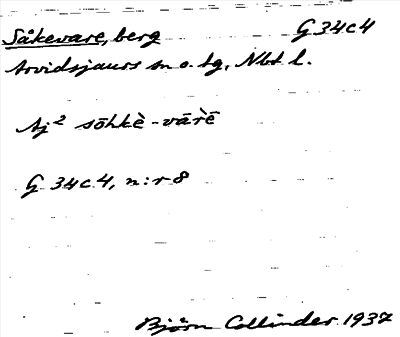 Såkevare, berg G 34c4
Arvidsjaurs sn o. tg, Nbt l.
Aj² sōhkè-vārḕ
G 34c4, n:r 8
Björn Collinder 1937